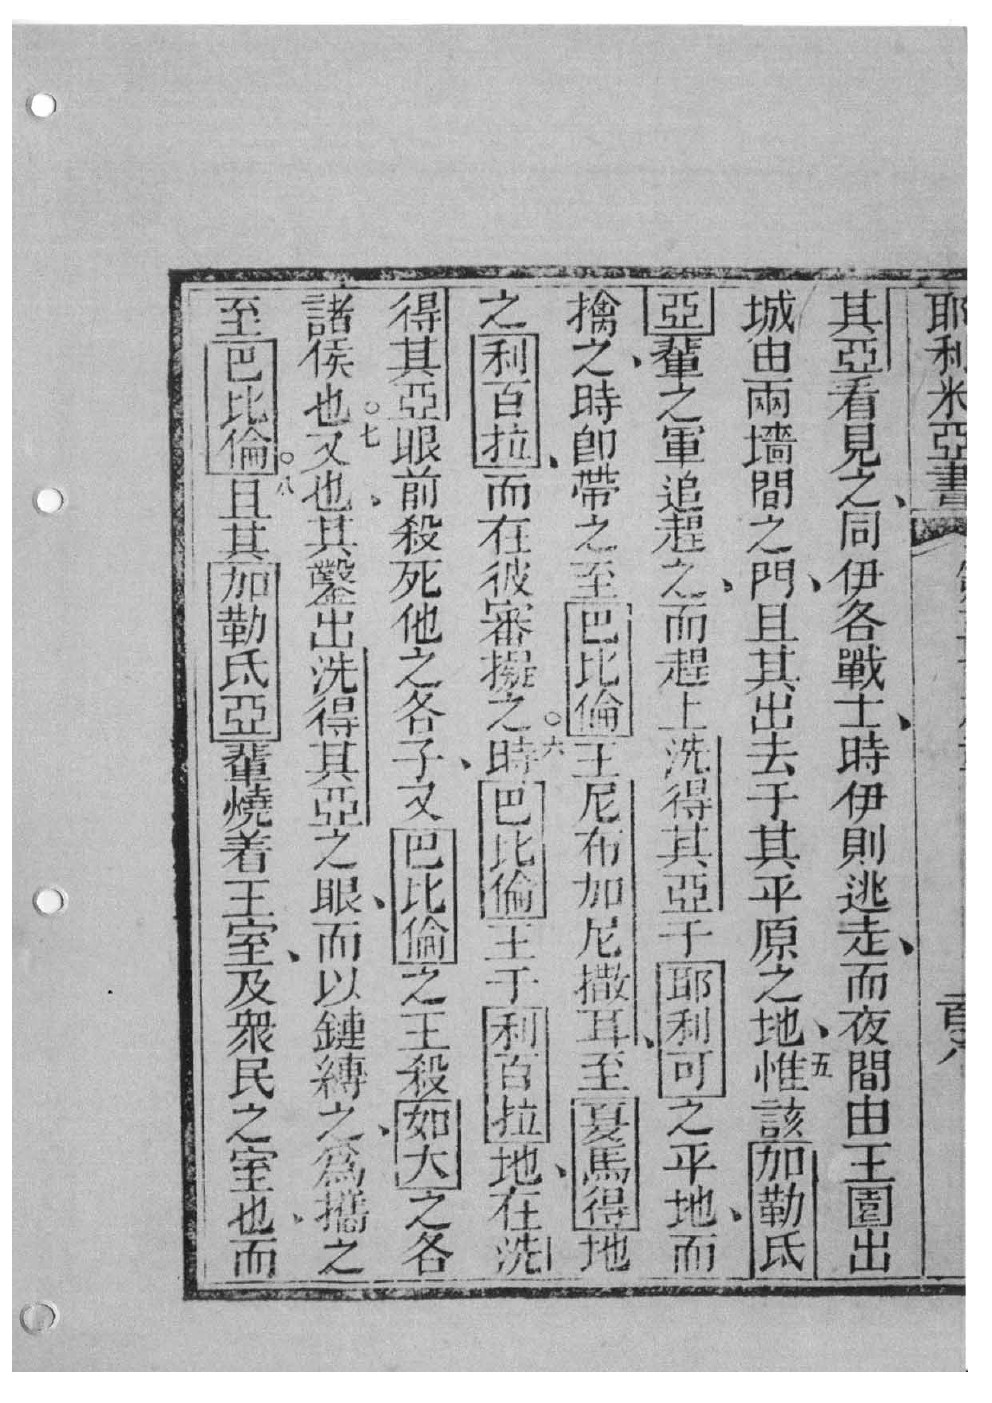 耶利米亞書
其亞看見之、同伊各戰士、時伊則逃走、而夜間由王園出
城由兩墻間之門、且其出去于其平原之地、五惟該加勒氐
亞輩之軍追趕之、而趕上洗得其亞于耶利可之平地、而
擒之、時即帶之至巴比倫王尼布加尼撒耳、至夏馬得地
之利百拉、而在彼審擬之。六時巴比倫王于利百拉地、在洗
得其亞眼前殺死他之各子、又巴比倫之王殺如大之各
諸侯也。七又也、其鑿出洗得其亞之眼、而以鏈縛之、爲攜之
至巴比倫。八且其加勒氐亞輩燒着王室、及衆民之室也、而